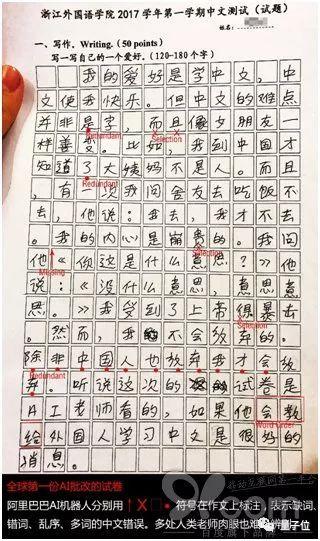 浙江外国语学院 2017 学年第一学期中文测试（试题）
一、写作。Writing.（50 points）
写一写自己的一个爱好。（120-180 个字）
我的爱好是学中文，中
文使我快乐。但中文的难点
并非是字，而且像女朋友一
Redundant
样善变。比如，我到中国才
知道了大姨妈不是人。而且
Redundant
，有一次我问舍友去吃饭不
去，他说：我去，我才不去
Selection
。我的内心是崩贵的。我问
他《你这是什么意思？》他
Missing
说：《没什么意思，意思意
思。》我受到了上帝很暴击
Selection
。然而，我不会放弃的。
除非中国人也放弃我才会放
Redundant
弃。听说这次的试卷是
AI老师看的，如果他会教
给外国人学习中文是很好的
Word Order
消息。
全球第一份AI批改的试卷
阿里巴巴AI机器人分别用 ↑ X □ • 符号在作文上标注，表示缺词、
错词、乱序、多词的中文错误。多处人类老师肉眼也难辨别
量子位